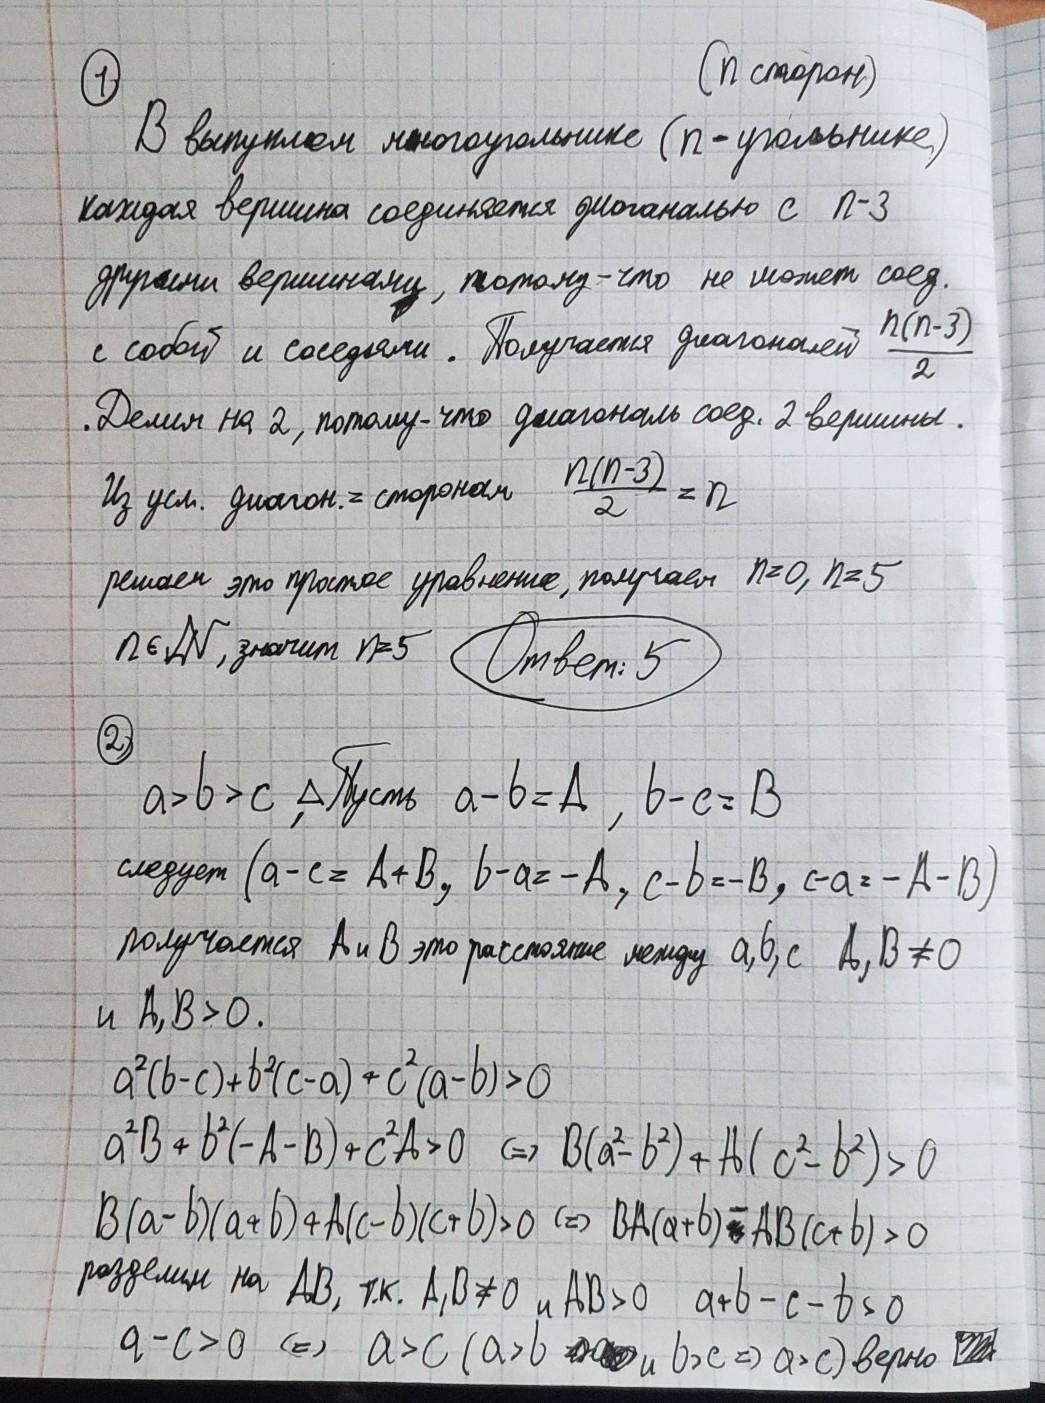 1
(n сторон)
В выпуклом многоугольнике (n-угольнике)
каждая вершина соединяется диоганалью с n-3
другими вершинами, потому-что не может соед.
с собой и соседями. Получается диагоналей n(n-3)/2
. Делим на 2, потому-что диагональ соед. 2 вершины.
Из усл. диагон. = сторонам n(n-3)/2 = n
решаем это простое уравнение, получаем n=0, n=5
n∈N, значит n=5 Ответ: 5
2)
a>b>c, △ Пусть a-b=A, b-c=B
следует (a-c=A+B, b-a=-A, c-b=-B, c-a=-A-B)
получается A и B это расстояние между a,b,c A,B≠0
и A,B>0.
a²(b-c)+b²(c-a)+c²(a-b)>0
a²B+b²(-A-B)+c²A>0 <=> B(a²-b²)+A(c²-b²)>0
B(a-b)(a+b)+A(c-b)(c+b)>0 <=> BA(a+b)-AB(c+b)>0
разделим на AB, т.к. A,B≠0 и AB>0 a+b-c-b>0
a-c>0 <=> a>c (a>b и b>c => a>c) верно